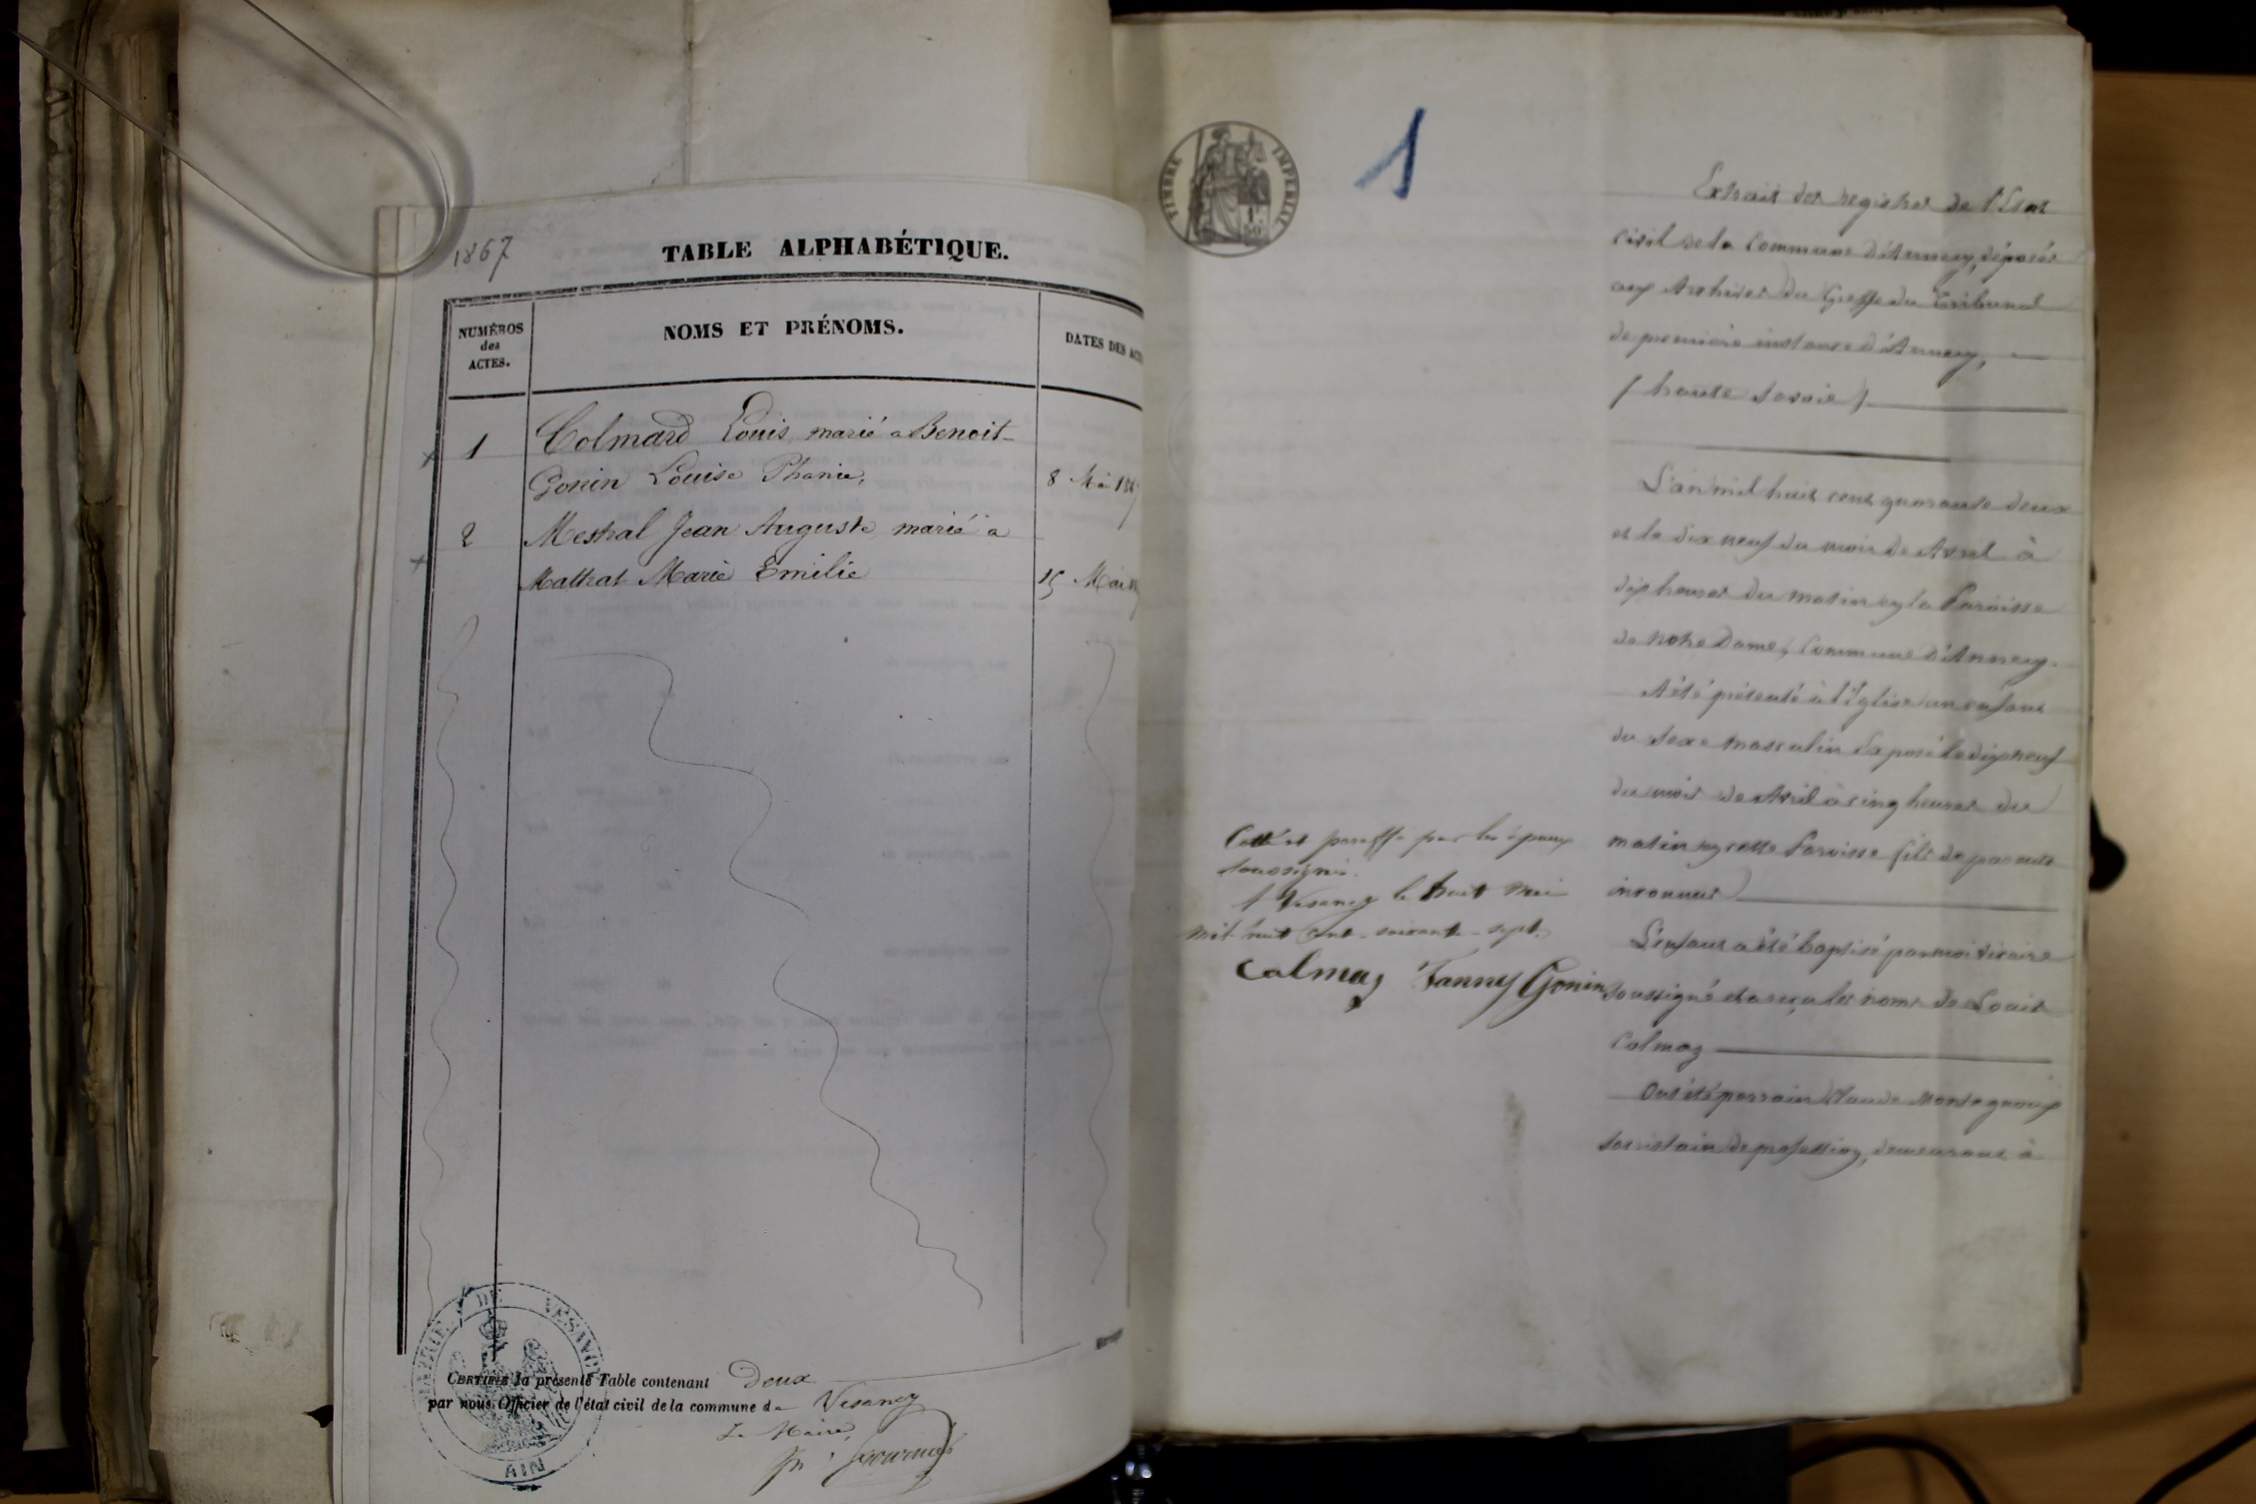 1867
TABLE ALPHABÉTIQUE.
NUMÉROS
des
ACTES.
NOMS ET PRÉNOMS.
DATES DES ACT
1
Colmard Louis marié a Benoit-
Gonin Louise Phanie,
8 Mai 1867
2
Mestral Jean Auguste marié a
Mathat Marie Emilie
15 Mai
MAIRIE DE VESANCY
AIN
CERTIFIÉ la présente Table contenant deux
par nous Officier de l'état civil de la commune de Vesancy
Le Maire,
TIMBRE IMPERIAL
1
Extrait des registres de l'Etat
civil de la Commune d'Annecy, déposés
aux Archives du Greffe du Tribunal
de première instance d'Annecy,
(haute Savoie)
L'an mil huit cent quarante deux
et le dix neuf du mois de Avril à
dix heures du matin en la Paroisse
de Notre Dame, Commune d'Annecy.
A été présenté à l'Eglise un enfant
du Sexe masculin Exposé le dix neuf
du mois de Avril à cinq heures du
matin en cette Paroisse fils de parents
inconnus
L'enfant a été baptisé par moi Vicaire
soussigné et a reçu les noms de Louis
Calmaz
Ont été parrain Claude Montagnoux
sacristain de profession, demeurant à
Coté et paraffe par les époux
soussignés.
A Vesancy le huit Mai
mil huit cent soixante-sept.
Calmaz Fanny Gonin